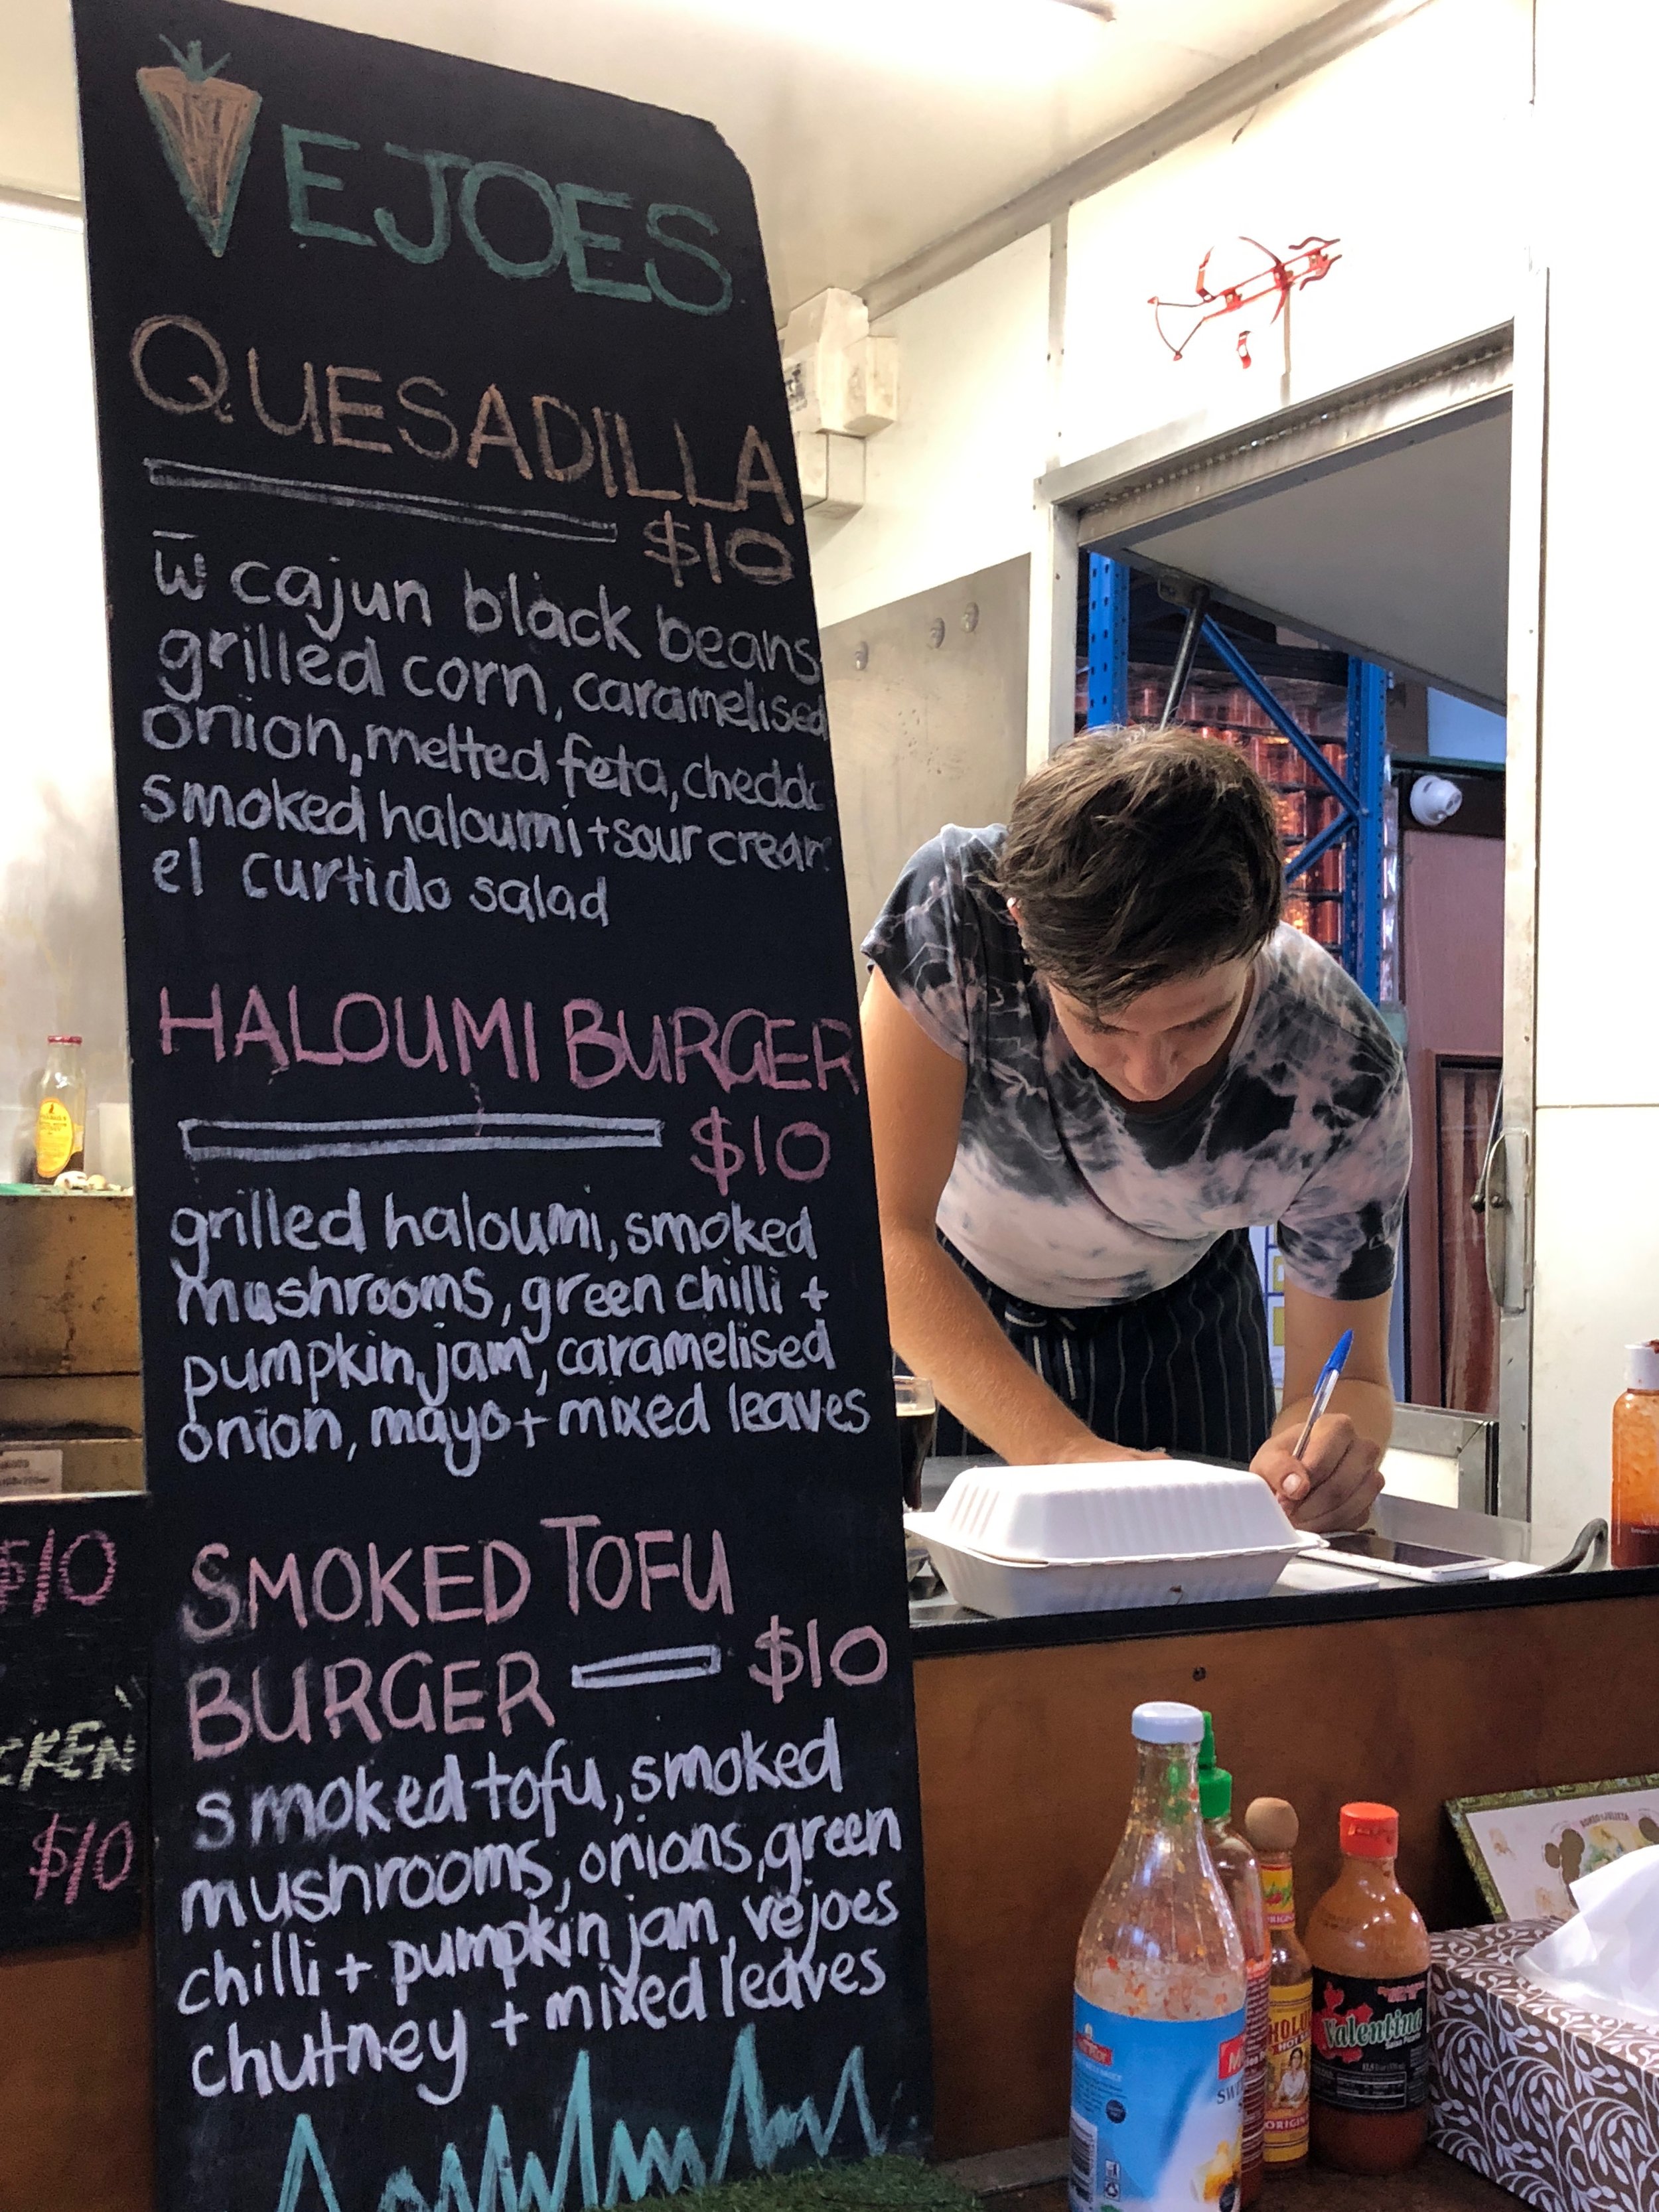 VEJOES
QUESADILLA
$10
w̄ cajun black beans
grilled corn, caramelised
onion, melted feta, chedda
smoked haloumi + sour cream
el curtido salad
HALOUMI BURGER
$10
grilled haloumi, smoked
mushrooms, green chilli +
pumpkin jam, caramelised
onion, mayo + mixed leaves
SMOKED TOFU
BURGER $10
smoked tofu, smoked
mushrooms, onions, green
chilli + pumpkin jam, vejoes
chutney + mixed leaves
$10
CKEN
$10
Valentina
ORIGINAL